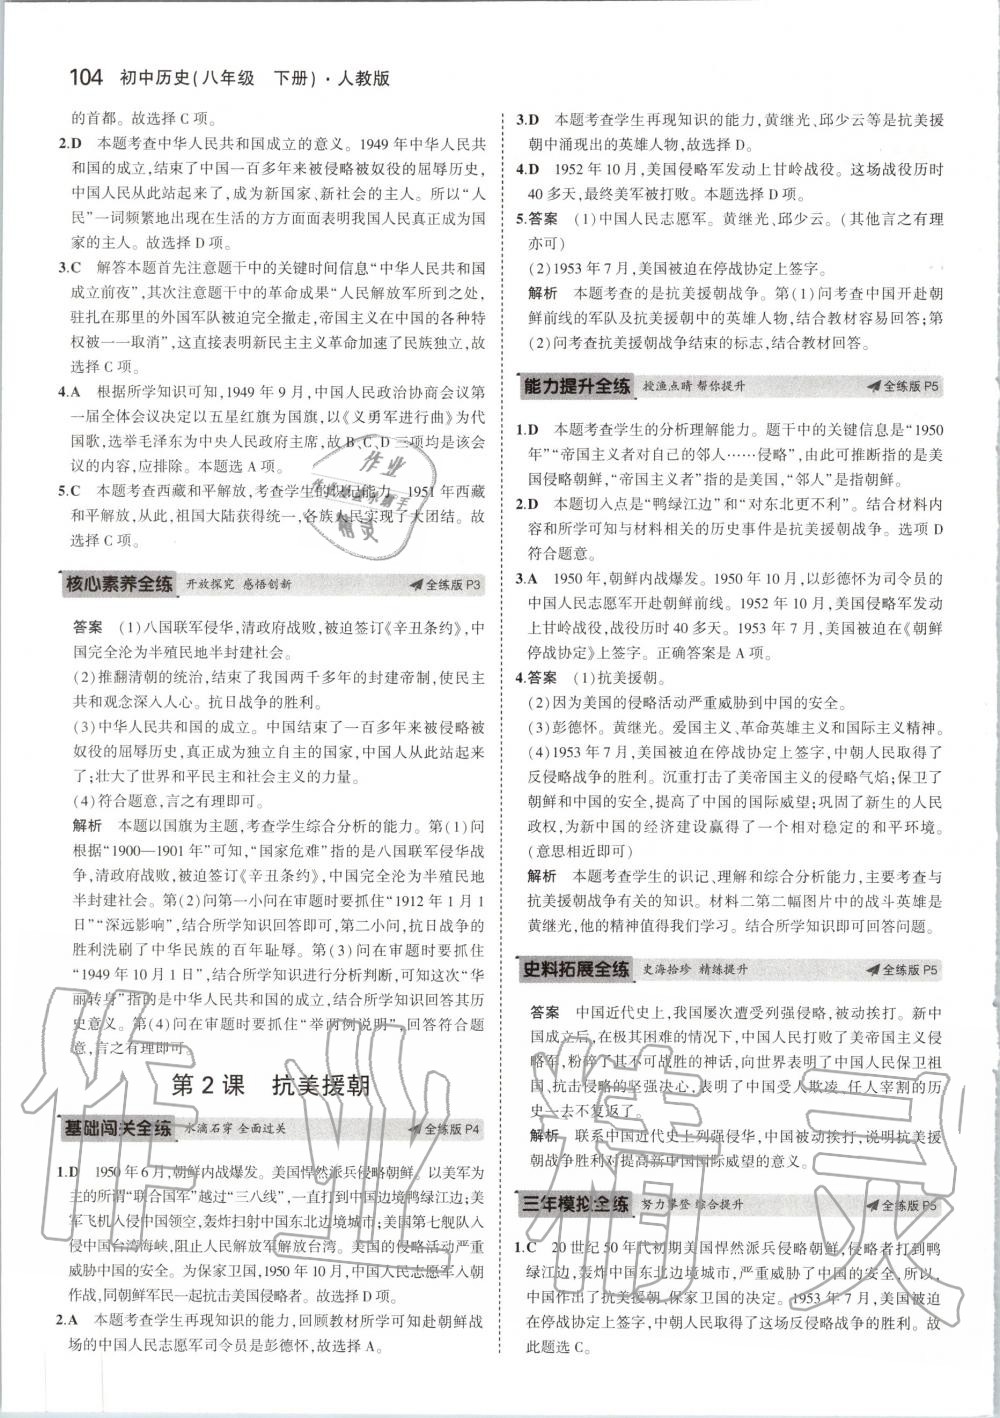 104 初中历史(八年级 下册)·人教版
的首都。故选择 C 项。
2.D 本题考查中华人民共和国成立的意义。1949 年中华人民共
和国的成立,结束了中国一百多年来被侵略被奴役的屈辱历史,
中国人民从此站起来了,成为新国家、新社会的主人。所以“人
民”一词频繁地出现在生活的方方面面表明我国人民真正成为国
家的主人。故选择 D 项。
3.C 解答本题首先注意题干中的关键时间信息“中华人民共和国
成立前夜”,其次注意题干中的革命成果“人民解放军所到之处,
驻扎在那里的外国军队被迫完全撤走,帝国主义在中国的各种特
权被一一取消”,这直接表明新民主主义革命加速了民族独立,故
选择 C 项。
4.A 根据所学知识可知,1949 年 9 月,中国人民政治协商会议第
一届全体会议决定以五星红旗为国旗,以《义勇军进行曲》为代
国歌,选举毛泽东为中央人民政府主席,故 B、C、D 三项均是该会
议的内容,应排除。本题选 A 项。
5.C 本题考查西藏和平解放,考查学生的识记能力。1951 年西藏
和平解放,从此,祖国大陆获得统一,各族人民实现了大团结。故
选择 C 项。
核心素养全练 开放探究 感悟创新 全练版 P3
答案 (1)八国联军侵华,清政府战败,被迫签订《辛丑条约》,中
国完全沦为半殖民地半封建社会。
(2)推翻清朝的统治,结束了我国两千多年的封建帝制,使民主
共和观念深入人心。抗日战争的胜利。
(3)中华人民共和国的成立。中国结束了一百多年来被侵略被
奴役的屈辱历史,真正成为独立自主的国家,中国人从此站起来
了;壮大了世界和平民主和社会主义的力量。
(4)符合题意,言之有理即可。
解析 本题以国旗为主题,考查学生综合分析的能力。第(1)问
根据“1900—1901 年”可知,“国家危难”指的是八国联军侵华战
争,清政府战败,被迫签订《辛丑条约》,中国完全沦为半殖民地
半封建社会。第(2)问第一小问在审题时要抓住“1912 年 1 月 1
日”“深远影响”,结合所学知识回答即可,第二小问,抗日战争的
胜利洗刷了中华民族的百年耻辱。第(3)问在审题时要抓住
“1949 年 10 月 1 日”,结合所学知识进行分析判断,可知此次“华
丽转身”指的是中华人民共和国的成立,结合所学知识回答其历
史意义。第(4)问在审题时要抓住“举两例说明”,回答符合题
意,言之有理即可。
第 2 课 抗美援朝
基础闯关全练 水滴石穿 全面过关 全练版 P4
1.D 1950 年 6 月,朝鲜内战爆发。美国悍然派兵侵略朝鲜。以美军为
主的所谓“联合国军”越过“三八线”,一直打到中国边境鸭绿江边,美
军飞机入侵中国领空,轰炸扫射中国东北边境城市,美国第七舰队入
侵中国台湾海峡,阻止人民解放军解放台湾。美国的侵略活动严重
威胁中国的安全。为保家卫国,1950 年 10 月,中国人民志愿军入朝
作战,同朝鲜军民一起抗击美国侵略者。故选择 D 项。
2.A 本题考查学生再现知识的能力,回顾教材所学可知赴朝鲜战
场的中国人民志愿军司令员是彭德怀,故选择 A。
3.D 本题考查学生再现知识的能力,黄继光、邱少云等是抗美援
朝中涌现出的英雄人物,故选择 D。
4.D 1952 年 10 月,美国侵略军发动上甘岭战役。这场战役历时
40 多天,最终美军被打败。本题选择 D 项。
5.答案 (1)中国人民志愿军。黄继光、邱少云。(其他言之有理
亦可)
(2)1953 年 7 月,美国被迫在停战协定上签字。
解析 本题考查的是抗美援朝战争。第(1)问考查中国开赴朝
鲜前线的军队及抗美援朝中的英雄人物,结合教材容易回答;第
(2)问考查抗美援朝战争结束的标志,结合教材回答。
能力提升全练 授渔点睛 帮你提升 全练版 P5
1.D 本题考查学生的分析理解能力。题干中的关键信息是“1950
年”“帝国主义者对自己的邻人……侵略”,由此可推断指的是美
国侵略朝鲜,“帝国主义者”指的是美国,“邻人”是指朝鲜。
2.D 本题切入点是“鸭绿江边”和“对东北更不利”。结合材料内
容和所学可知与材料相关的历史事件是抗美援朝战争。选项 D
符合题意。
3.A 1950 年,朝鲜内战爆发。1950 年 10 月,以彭德怀为司令员的
中国人民志愿军开赴朝鲜前线。1952 年 10 月,美国侵略军发动
上甘岭战役,战役历时 40 多天。1953 年 7 月,美国被迫在《朝鲜
停战协定》上签字。正确答案是 A 项。
4.答案 (1)抗美援朝。
(2)因为美国的侵略活动严重威胁到中国的安全。
(3)彭德怀。黄继光。爱国主义、革命英雄主义和国际主义精神。
(4)1953 年 7 月,美国被迫在停战协定上签字,中朝人民取得了
反侵略战争的胜利。沉重打击了美帝国主义的侵略气焰;保卫了
朝鲜和中国的安全,提高了中国的国际威望;巩固了新生的人民
政权,为新中国的经济建设赢得了一个相对稳定的和平环境。
(意思相近即可)
解析 本题考查学生的识记、理解和综合分析能力,主要考查与
抗美援朝战争有关的知识。材料二第二幅图片中的战斗英雄是
黄继光,他的精神值得我们学习。结合所学知识即可回答问题。
史料拓展全练 史海拾珍 精练提升 全练版 P5
答案 中国近代史上,我国屡次遭受列强侵略,被动挨打。新中
国成立后,在极其困难的情况下,中国人民打败了美帝国主义侵
略军,粉碎了其不可战胜的神话,向世界表明了中国人民保卫祖
国、抗击侵略的坚强决心,表明了中国受人欺凌、任人宰割的历
史一去不复返了。
解析 联系中国近代史上列强侵华,中国被动挨打,说明抗美援
朝战争胜利对提高新中国国际威望的意义。
三年模拟全练 努力攀登 综合提升 全练版 P5
1.C 20 世纪 50 年代初期美国悍然派兵侵略朝鲜,侵略者打到鸭
绿江边,轰炸中国东北边境城市,严重威胁了中国的安全,所以作
出了抗美援朝、保家卫国的决定。1953 年 7 月,美国被迫
在停战协定上签字,中朝人民取得了反侵略战争的胜利。故
此题选 C。
作业精灵